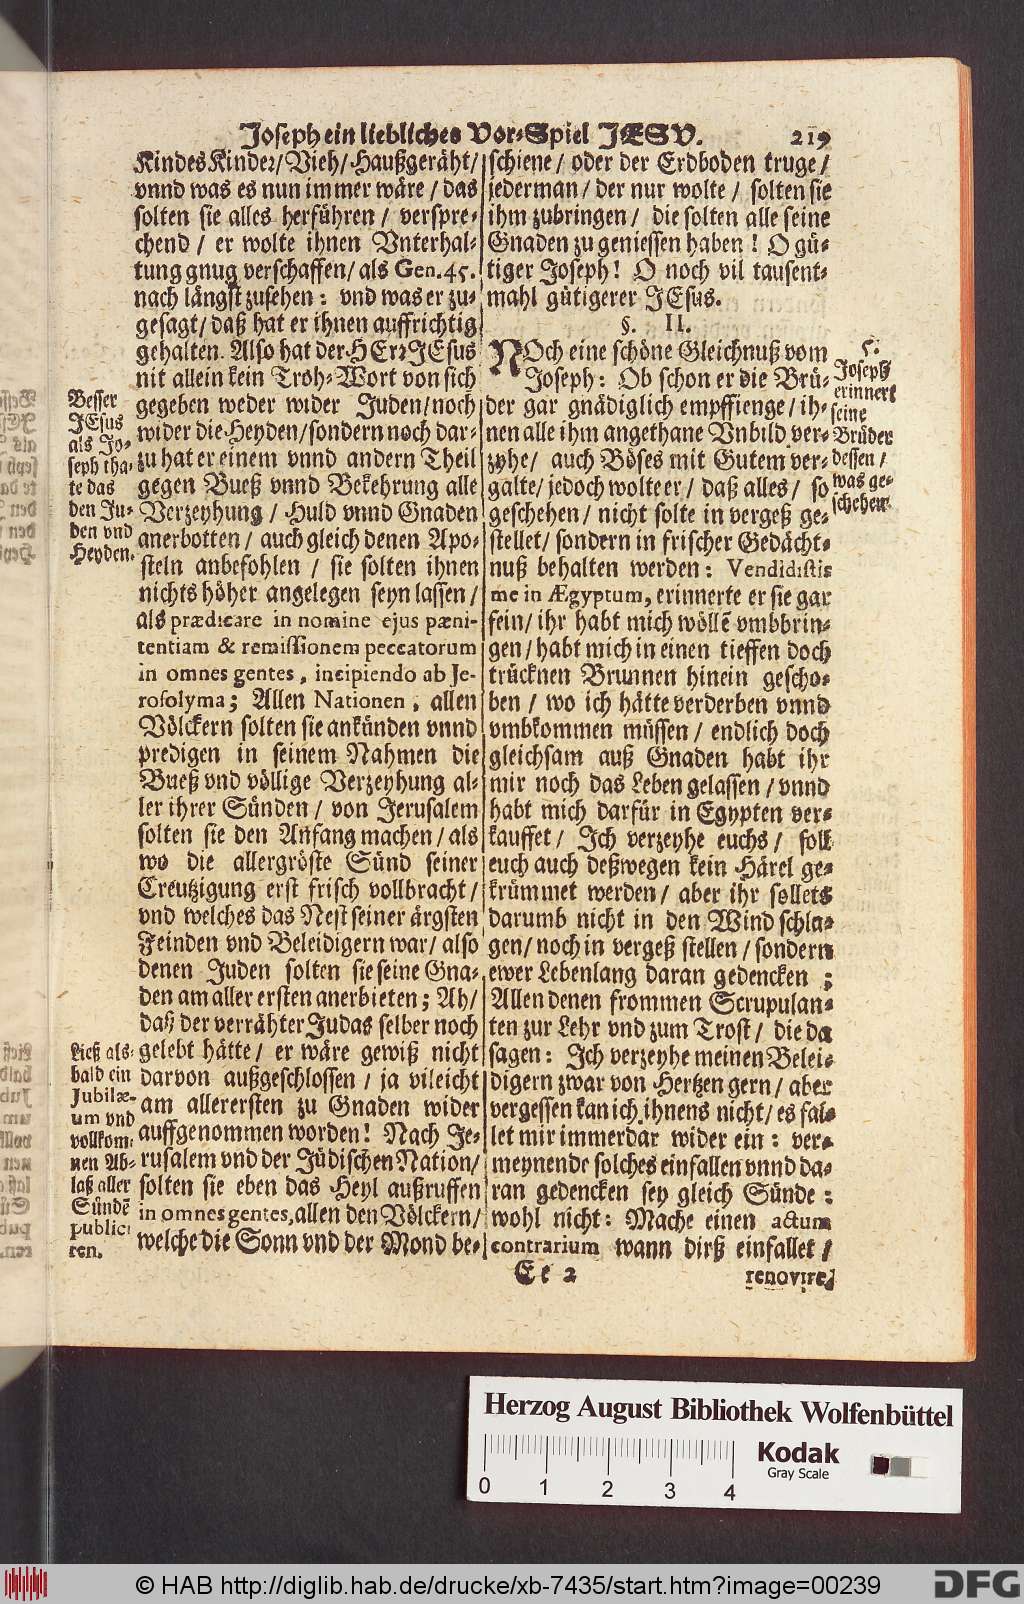 Joseph ein liebliches Vor-Spiel JESV. 219
Kindes Kinder/ Vieh/ Haußgeräht/
vnnd was es nun immer wäre / das
solten sie alles herführen / verspre-
chend / er wolte ihnen Vnterhal-
tung gnug verschaffen/ als Gen. 45.
nach längst zusehen: vnd was er zu-
gesagt/ daß hat er ihnen auffrichtig
gehalten. Also hat der HErr JEsus
nit allein kein Troh-Wort von sich
gegeben weder wider Juden/ noch
wider die Heyden/ sondern noch dar-
zu hat er einem vnnd andern Theil
gegen Bueß vnnd Bekehrung alle
Verzeyhung / Huld vnnd Gnaden
anerbotten / auch gleich denen Apo-
steln anbefohlen / sie solten ihnen
nichts höher angelegen seyn lassen /
als prædicare in nomine ejus pœni-
tentiam & remissionem peccatorum
in omnes gentes, incipiendo ab Je-
rosolyma; Allen Nationen, allen
Völckern solten sie ankünden vnnd
predigen in seinem Nahmen die
Bueß vnd völlige Verzeyhung al-
ler ihrer Sünden / von Jerusalem
solten sie den Anfang machen / als
wo die allergröste Sünd seiner
Creutzigung erst frisch vollbracht /
vnd welches das Nest seiner ärgsten
Feinden vnd Beleidigern war/ also
denen Juden solten sie seine Gna-
den am aller ersten anerbieten; Ah/
daß der verrähter Judas selber noch
gelebt hätte / er wäre gewiß nicht
darvon außgeschlossen / ja vileicht
am allerersten zu Gnaden wider
auffgenommen worden! Nach Je-
rusalem vnd der Jüdischen Nation/
solten sie eben das Heyl außruffen
in omnes gentes, allen den Völckern /
welche die Sonn vnd der Mond be-
Besser
JEsus
als Jo-
seph tha-
te das
den Ju-
den vnd
Heyden.
Ließ als-
bald ein
Jubilæ-
um vnd
vollkom-
nen Ab-
laß aller
Sündẽ
publici-
ren.
schiene / oder der Erdboden truge /
jederman / der nur wolte / solten sie
ihm zubringen / die solten alle seine
Gnaden zu geniessen haben! O gü-
tiger Joseph! O noch vil tausent-
mahl gütigerer JEsus.
§. II.
NOch eine schöne Gleichnuß vom
Joseph: Ob schon er die Brü-
der gar gnädiglich empffienge / ih-
nen alle ihm angethane Vnbild ver-
zyhe / auch Böses mit Gutem ver-
galte / jedoch wolte er / daß alles / so
geschehen / nicht solte in vergeß ge-
stellet / sondern in frischer Gedächt-
nuß behalten werden: Vendidistis
me in Ægyptum, erinnerte er sie gar
fein / ihr habt mich wöllẽ vmbbrin-
gen / habt mich in einen tieffen doch
trücknen Brunnen hinein gescho-
ben / wo ich hätte verderben vnnd
vmbkommen müssen / endlich doch
gleichsam auß Gnaden habt ihr
mir noch das Leben gelassen / vnnd
habt mich darfür in Egypten ver-
kauffet / Ich verzeyhe euchs / soll
euch auch deßwegen kein Härel ge-
krümmet werden / aber ihr sollets
darumb nicht in den Wind schla-
gen / noch in vergeß stellen / sondern
ewer Lebenlang daran gedencken ;
Allen denen frommen Scrupulan-
ten zur Lehr vnd zum Trost / die da
sagen: Ich verzeyhe meinen Belei-
digern zwar von Hertzen gern / aber
vergessen kan ich ihnens nicht / es fal-
let mir immerdar wider ein: ver-
meynende solches einfallen vnnd da-
ran gedencken sey gleich Sünde:
wohl nicht: Mache einen actum
contrarium wann dirß einfallet /
5.
Joseph
erinnert
seine
Brüder
dessen /
was ge-
schehen.
Ee 2 renovire/
Herzog August Bibliothek Wolfenbüttel
Kodak
Gray Scale
0 1 2 3 4
© HAB http://diglib.hab.de/drucke/xb-7435/start.htm?image=00239
DFG